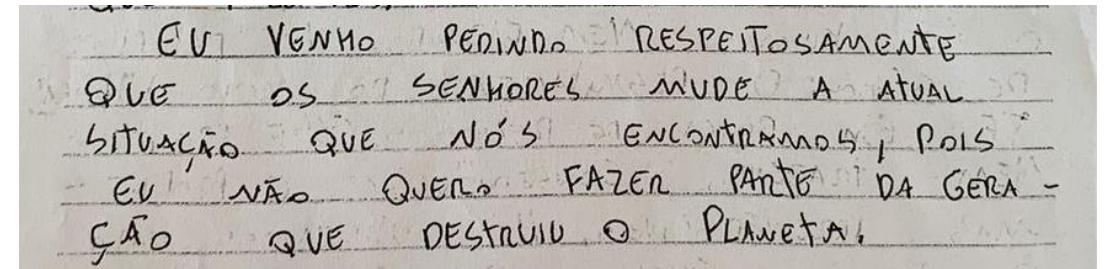 EU VENHO PEDINDO RESPEITOSAMENTE
QUE OS SENHORES MUDE A ATUAL
SITUAÇÃO QUE NÓS ENCONTRAMOS, POIS
EU NÃO QUERO FAZER PARTE DA GERA-
ÇÃO QUE DESTRUIU O PLANETA.